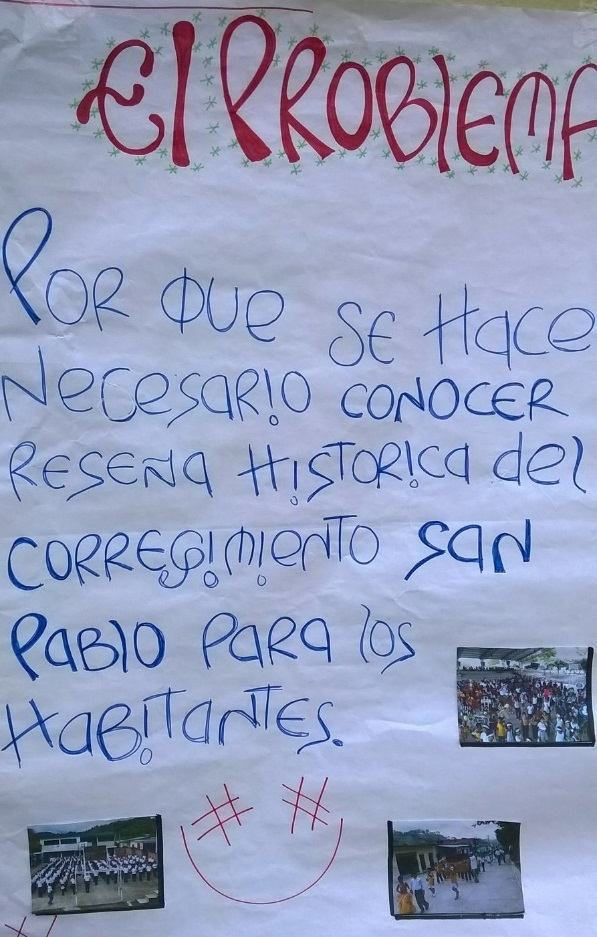 El PROBLEMA
POR QUE SE HACE
NECESARIO CONOCER
RESEÑA HISTORICA del
CORREGIMIENTO SAN
PABLO PARA los
HABITANTES.